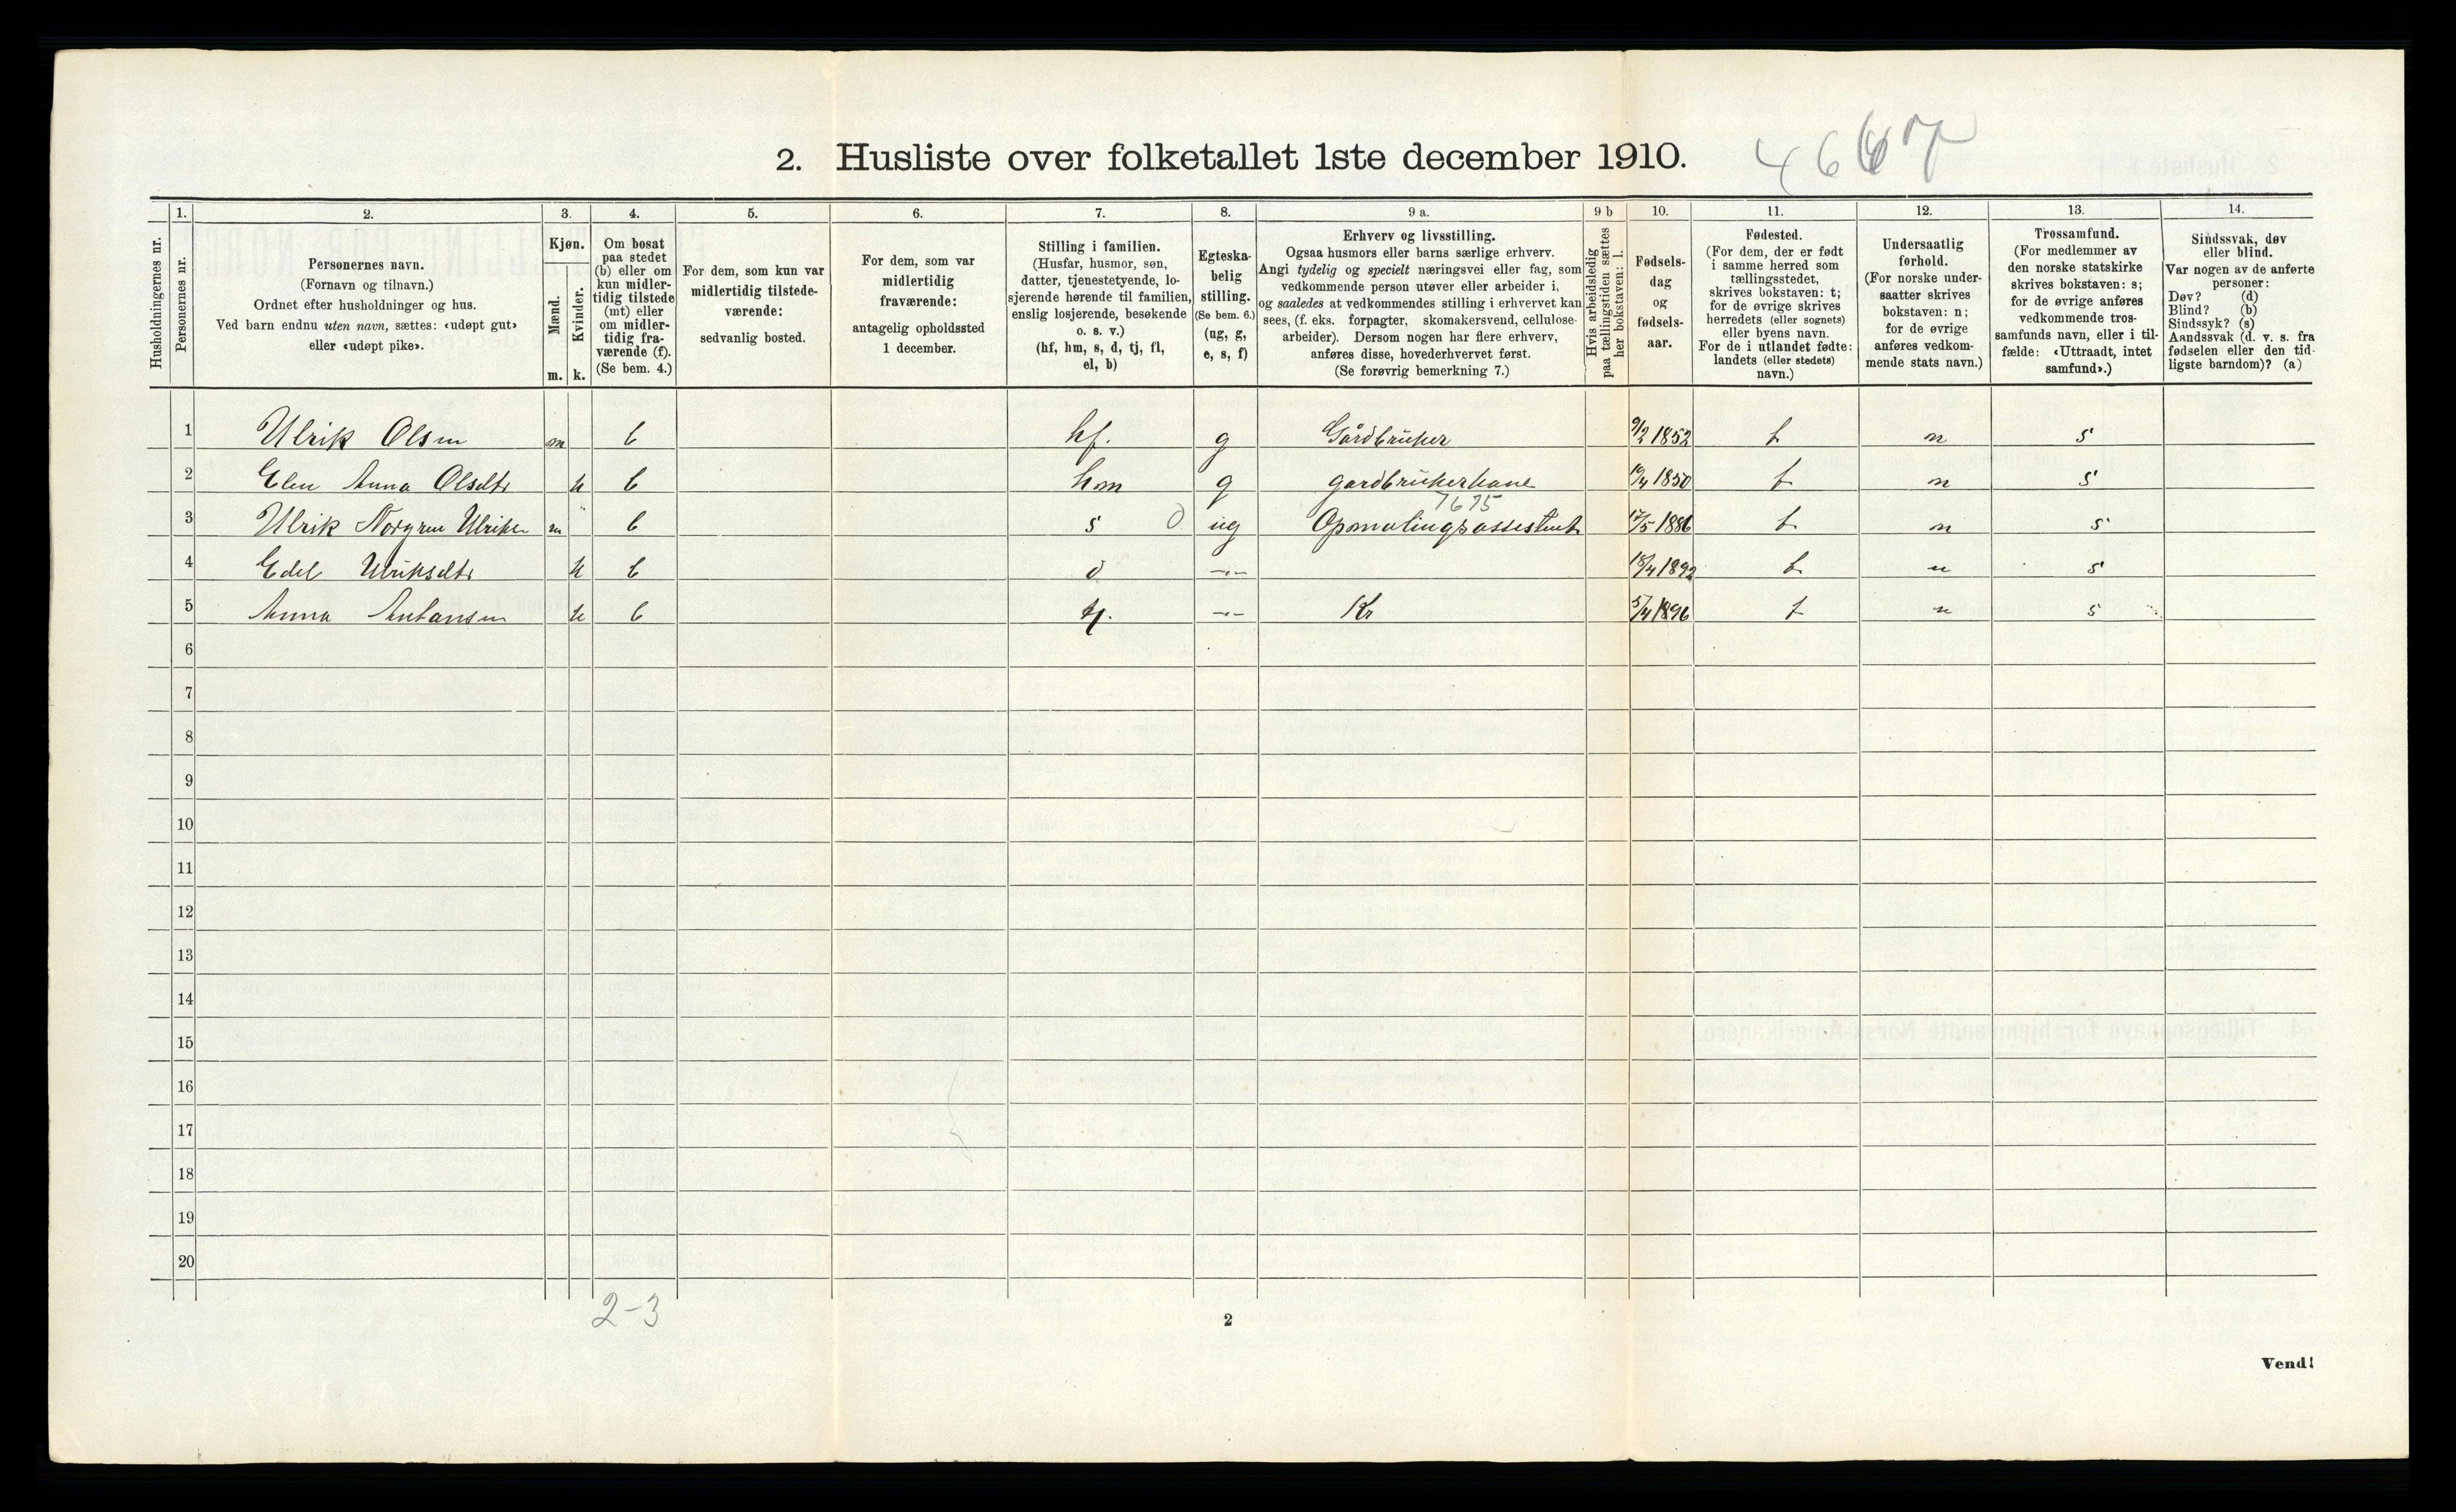 2. Husliste over folketallet 1ste december 1910.
4667
Husholdningernes nr.
1.
Personernes nr.
2.
Personernes navn.
(Fornavn og tilnavn.)
Ordnet efter husholdninger og hus.
Ved barn endnu uten navn, sættes: «udøpt gut»
eller «udøpt pike».
3.
Kjøn.
Mænd.
Kvinder.
m. k.
4.
Om bosat
paa stedet
(b) eller om
kun midler-
tidig tilstede
(mt) eller
om midler-
tidig fra-
værende (f).
(Se bem. 4.)
5.
For dem, som kun var
midlertidig tilstede-
værende:
sedvanlig bosted.
6.
For dem, som var
midlertidig
fraværende:
antagelig opholdssted
1 december.
7.
Stilling i familien.
(Husfar, husmor, søn,
datter, tjenestetyende, lo-
sjerende hørende til familien,
enslig losjerende, besøkende
o. s. v.)
(hf, hm, s, d, tj, fl,
el, b)
8.
Egteska-
belig
stilling.
(Se bem. 6.)
(ug, g,
e, s, f)
9 a.
Erhverv og livsstilling.
Ogsaa husmors eller barns særlige erhverv.
Angi tydelig og specielt næringsvei eller fag, som
vedkommende person utøver eller arbeider i,
og saaledes at vedkommendes stilling i erhvervet kan
sees, (f. eks. forpagter, skomakersvend, cellulose-
arbeider). Dersom nogen har flere erhverv,
anføres disse, hovederhvervet først.
(Se forøvrig bemerkning 7.)
9 b
Hvis arbeidsledig
paa tællingstiden sættes
her bokstaven: l.
10.
Fødsels-
dag
og
fødsels-
aar.
11.
Fødested.
(For dem, der er født
i samme herred som
tællingsstedet,
skrives bokstaven: t;
for de øvrige skrives
herredets (eller sognets)
eller byens navn.
For de i utlandet fødte:
landets (eller stedets)
navn.)
12.
Undersaatlig
forhold.
(For norske under-
saatter skrives
bokstaven: n;
for de øvrige
anføres vedkom-
mende stats navn.)
13.
Trossamfund.
(For medlemmer av
den norske statskirke
skrives bokstaven: s;
for de øvrige anføres
vedkommende tros-
samfunds navn, eller i til-
fælde: «Uttraadt, intet
samfund».)
14.
Sindssvak, døv
eller blind.
Var nogen av de anførte
personer:
Døv? (d)
Blind? (b)
Sindssyk? (s)
Aandssvak (d. v. s. fra
fødselen eller den tid-
ligste barndom)? (a)
1 Ulrik Olsen m b hf. g Gårdbruker 9/2 1852 t n s
2 Elen Anna Olsdtr k b hm g gardbrukerkone 19/4 1850 t n s
7675
3 Ulrik Norgren Ulriksen m b s 0 ug Opmalingsassestent 17/5 1886 t n s
4 Edel Ulriksdtr k b d -"- 18/4 1892 t n s
5 Anna Antonsen k b tj. -"- 5/4 1896 t n s
6
7
8
9
10
11
12
13
14
15
16
17
18
19
20
2-3
2
Vend!